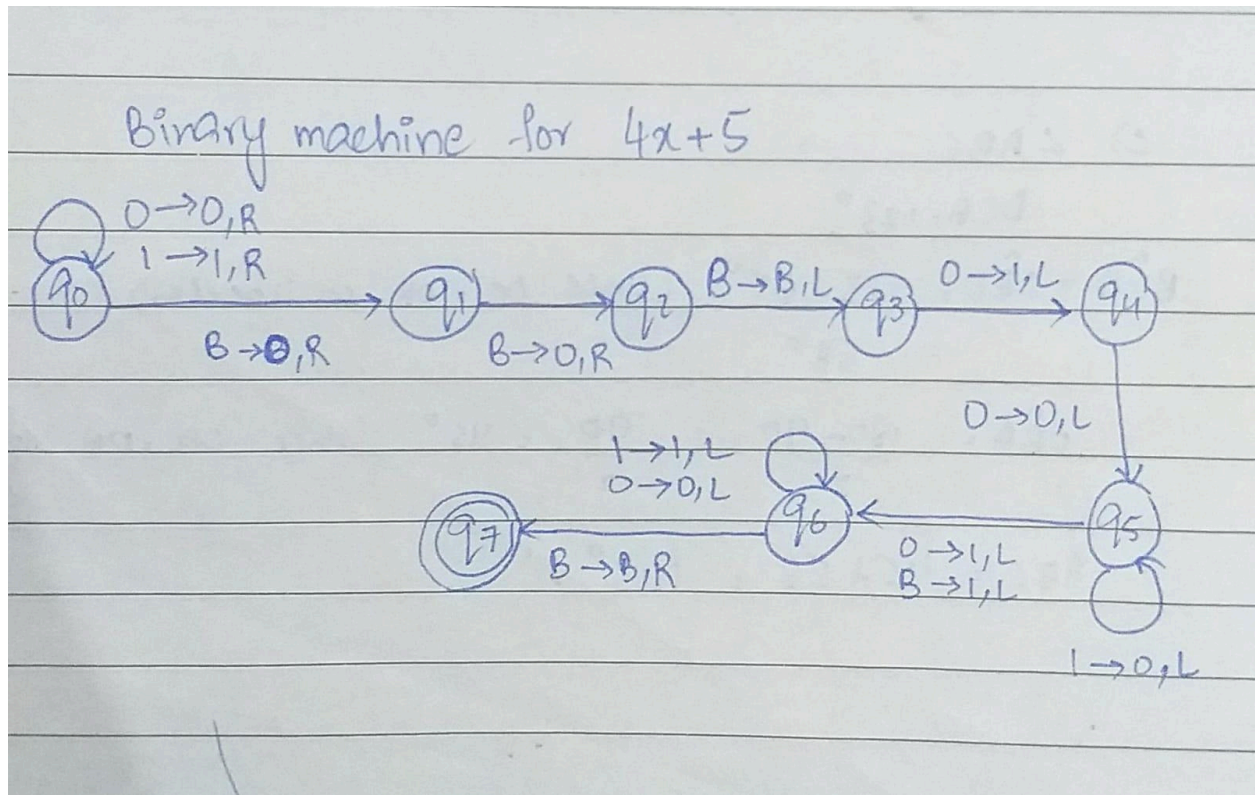 Binary machine for 4x+5
0→0,R
1→1,R
q0
B→0,R
q1
B→0,R
q2
B→B,L
q3
0→1,L
q4
0→0,L
q5
1→0,L
0→1,L
B→1,L
q6
1→1,L
0→0,L
B→B,R
q7